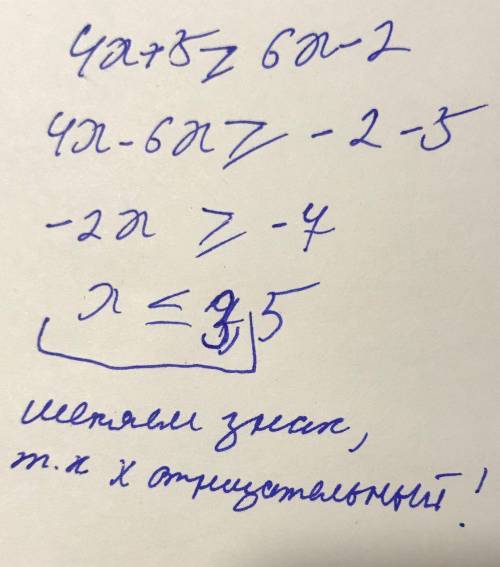 4x+5≥ 6x-2
4x-6x≥ -2-5
-2x ≥ -7
x ≤ 3,5
меняем знак,
т.к x отрицательный!